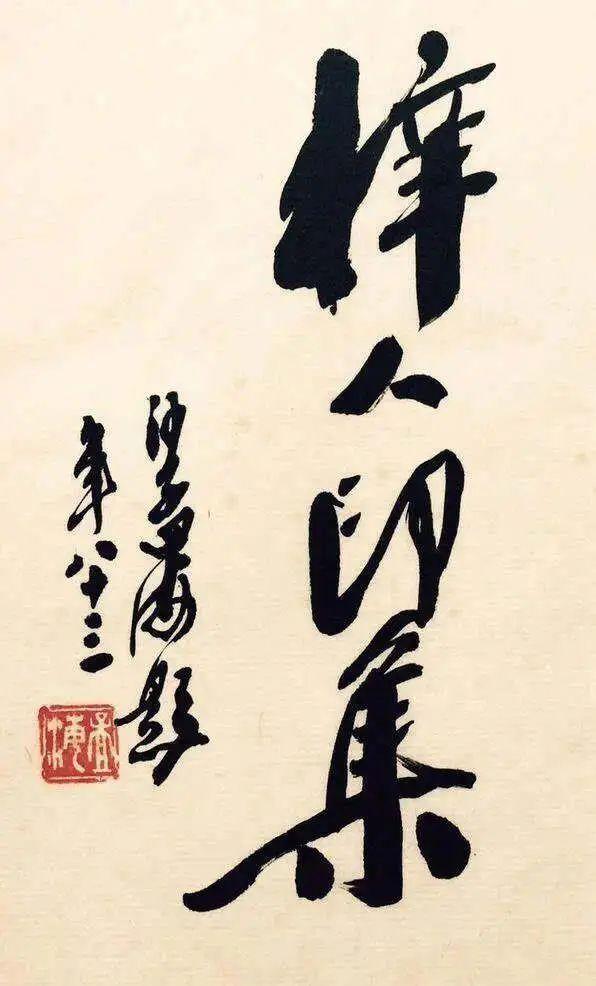 梓人印集
沙孟海题
年八十三
孟海